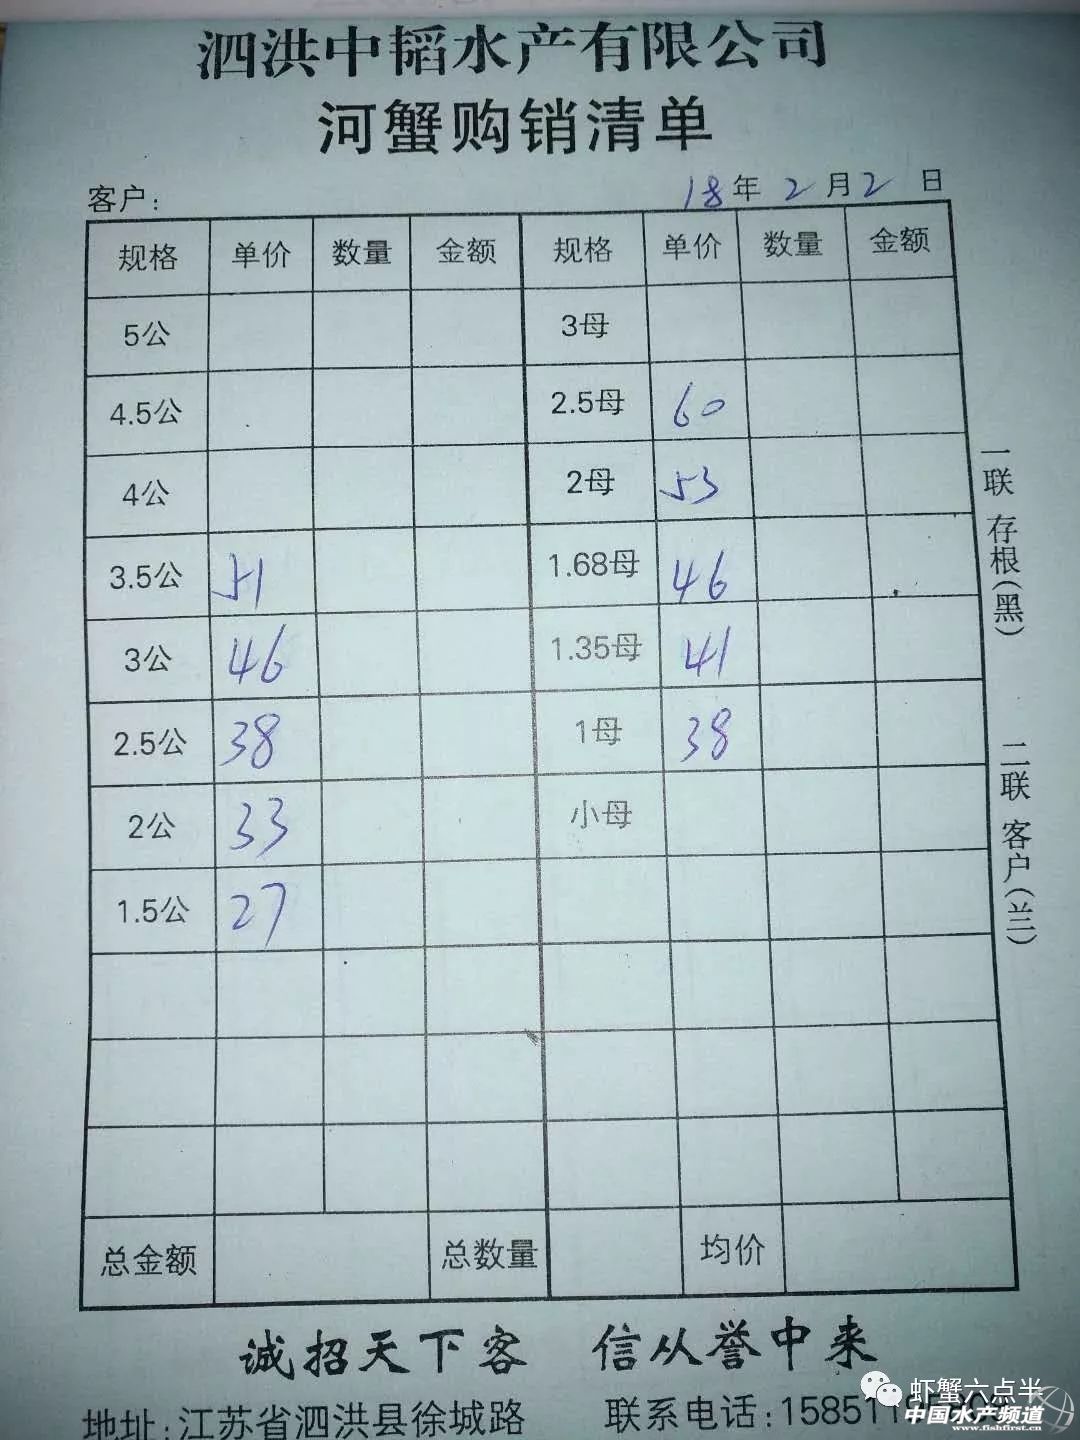 泗洪中韬水产有限公司
河蟹购销清单
客户: 18年2月2日
规格 单价 数量 金额 规格 单价 数量 金额
5公 3母
4.5公 2.5母 60
4公 2母 53
3.5公 51 1.68母 46
3公 46 1.35母 41
2.5公 38 1母 38
2公 33 小母
1.5公 27
总金额 总数量 均价
一联 存根(黑) 二联 客户(兰)
诚招天下客 信从誉中来
地址:江苏省泗洪县徐城路 联系电话:158511
虾蟹六点半
中国水产频道
www.fishfirst.cn